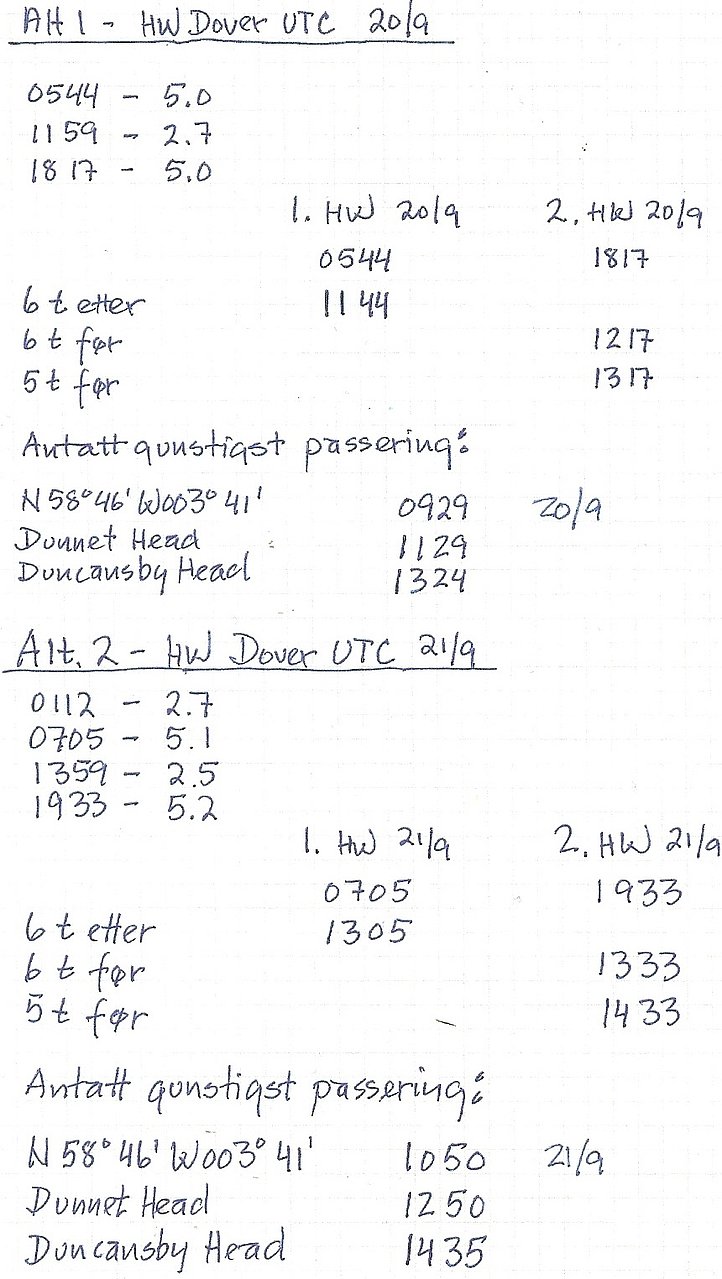 Alt 1 - HW Dover UTC 20/9
0544 - 5.0
1159 - 2.7
1817 - 5.0
1. HW 20/9 2. HW 20/9
0544 1817
6 t etter 1144
6 t før 1217
5 t før 1317
Antatt gunstigst passering:
N 58°46' W003°41' 0929 20/9
Dunnet Head 1129
Duncansby Head 1324
Alt. 2 - HW Dover UTC 21/9
0112 - 2.7
0705 - 5.1
1359 - 2.5
1933 - 5.2
1. HW 21/9 2. HW 21/9
0705 1933
6 t etter 1305
6 t før 1333
5 t før 1433
Antatt gunstigst passering:
N 58°46' W003°41' 1050 21/9
Dunnet Head 1250
Duncansby Head 1435